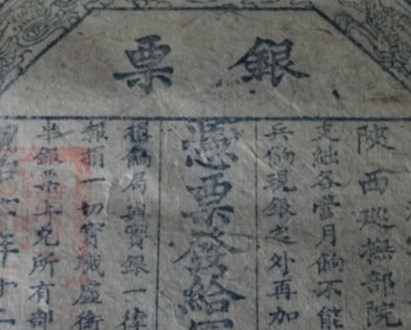 銀票
陝西巡撫部院
支絀各營月餉不能
兵餉現銀之外再加
憑票發給
糧餉局實銀一律
報捐一切實職虛銜
半銀票年免所有部
年十